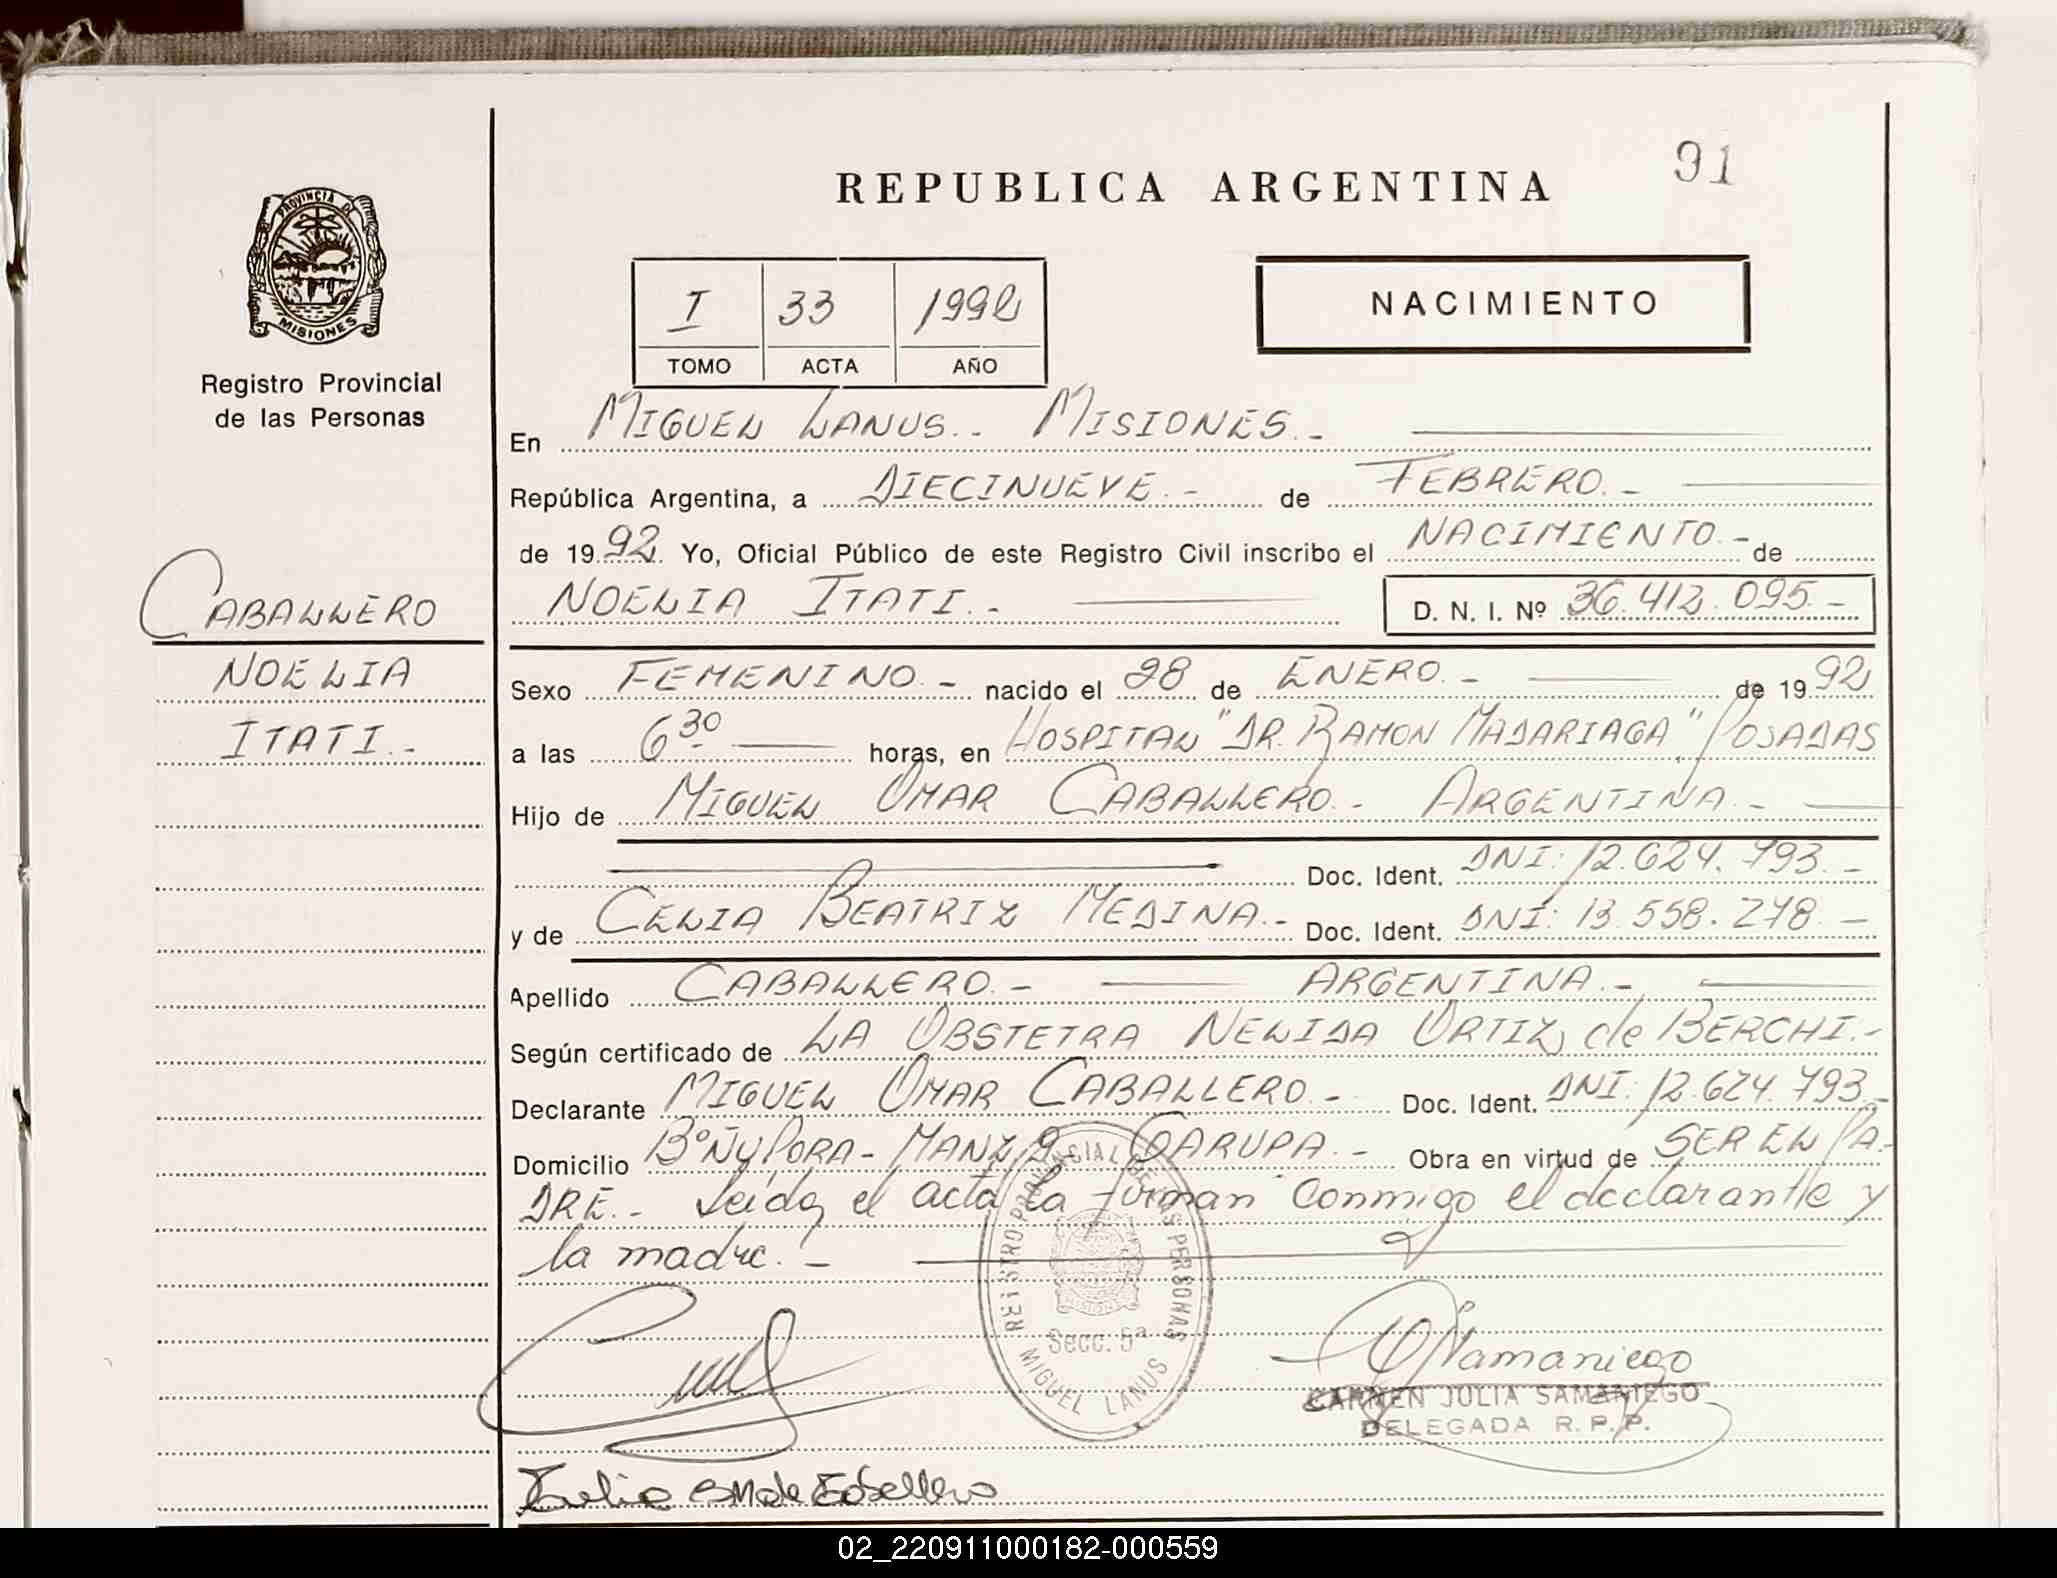 91
REPUBLICA ARGENTINA
PROVINCIA DE
MISIONES
Registro Provincial
de las Personas
I 33 1992
TOMO ACTA AÑO
NACIMIENTO
En MIGUEL LANUS.- MISIONES.-
República Argentina, a DIECINUEVE.- de FEBRERO.-
de 1992. Yo, Oficial Público de este Registro Civil inscribo el NACIMIENTO.- de
NOELIA ITATI.- D. N. I. Nº 36.412.095.-
CABALLERO
NOELIA
ITATI.-
Sexo FEMENINO.- nacido el 28 de ENERO.- de 1992
a las 6 30 horas, en HOSPITAL "DR. RAMON MADARIAGA" POSADAS
Hijo de MIGUEL OMAR CABALLERO.- ARGENTINA.-
Doc. Ident. DNI: 12.624.793.-
y de CELIA BEATRIZ MEDINA.- Doc. Ident. DNI: 13.558.278.-
Apellido CABALLERO.- ARGENTINA.-
Según certificado de LA OBSTETRA NELIDA ORTIZ de BERCHI.-
Declarante MIGUEL OMAR CABALLERO.- Doc. Ident. DNI: 12.624.793-
Domicilio Bº ÑU PORA- MANZ 9 GARUPA.- Obra en virtud de SER EL PA-
DRE.- Leida el acta la firman conmigo el declarante y
la madre.-
REGISTRO PROVINCIAL DE LAS PERSONAS
MISIONES
Secc. 5ª
MIGUEL LANUS
Samaniego
CARMEN JULIA SAMANIEGO
DELEGADA R. P. P.
02_220911000182-000559